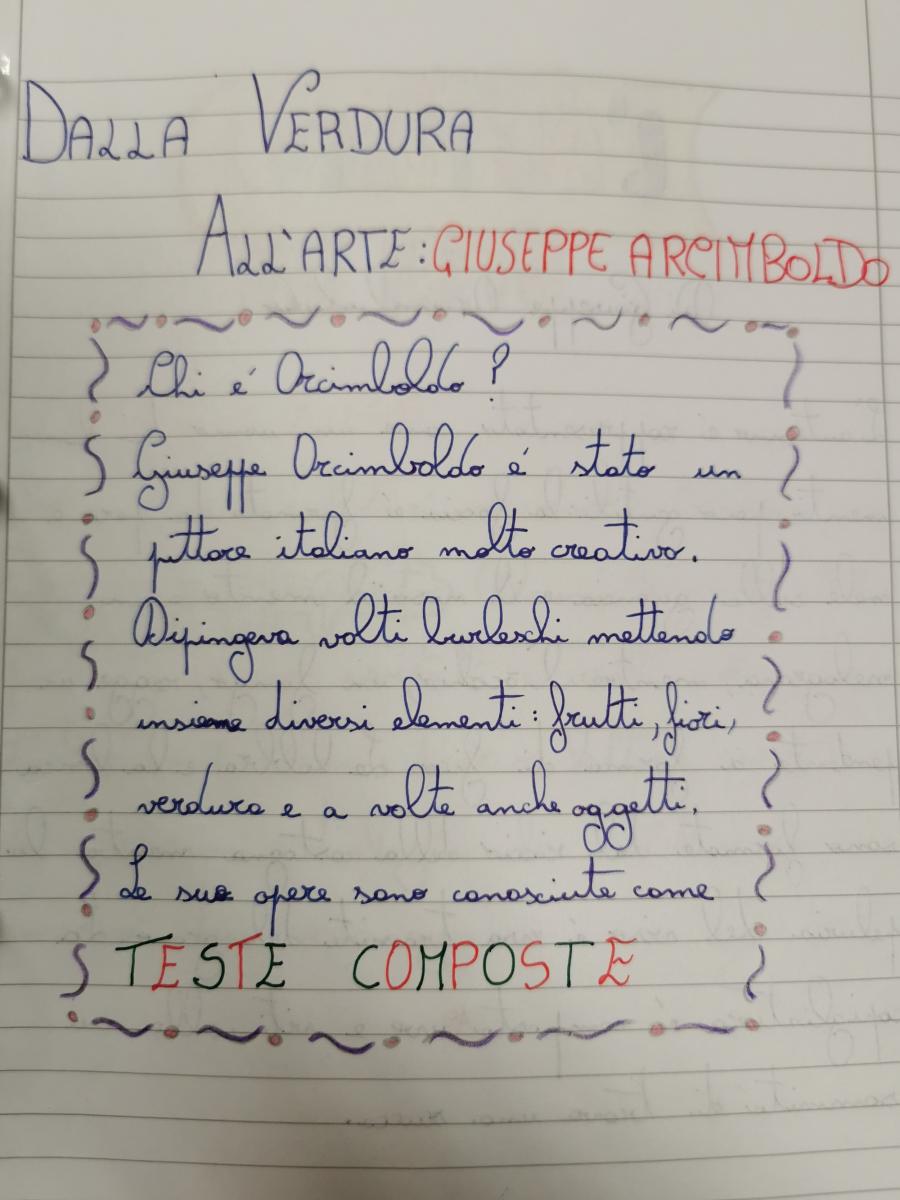 DALLA VERDURA
ALL'ARTE: GIUSEPPE ARCIMBOLDO
Chi é Arcimboldo?
Giuseppe Arcimboldo é stato un
pittore italiano molto creativo.
Dipingeva volti burleschi mettendo
insieme diversi elementi: frutti, fiori,
verdura e a volte anche oggetti.
Le sue opere sono conosciute come
TESTE COMPOSTE